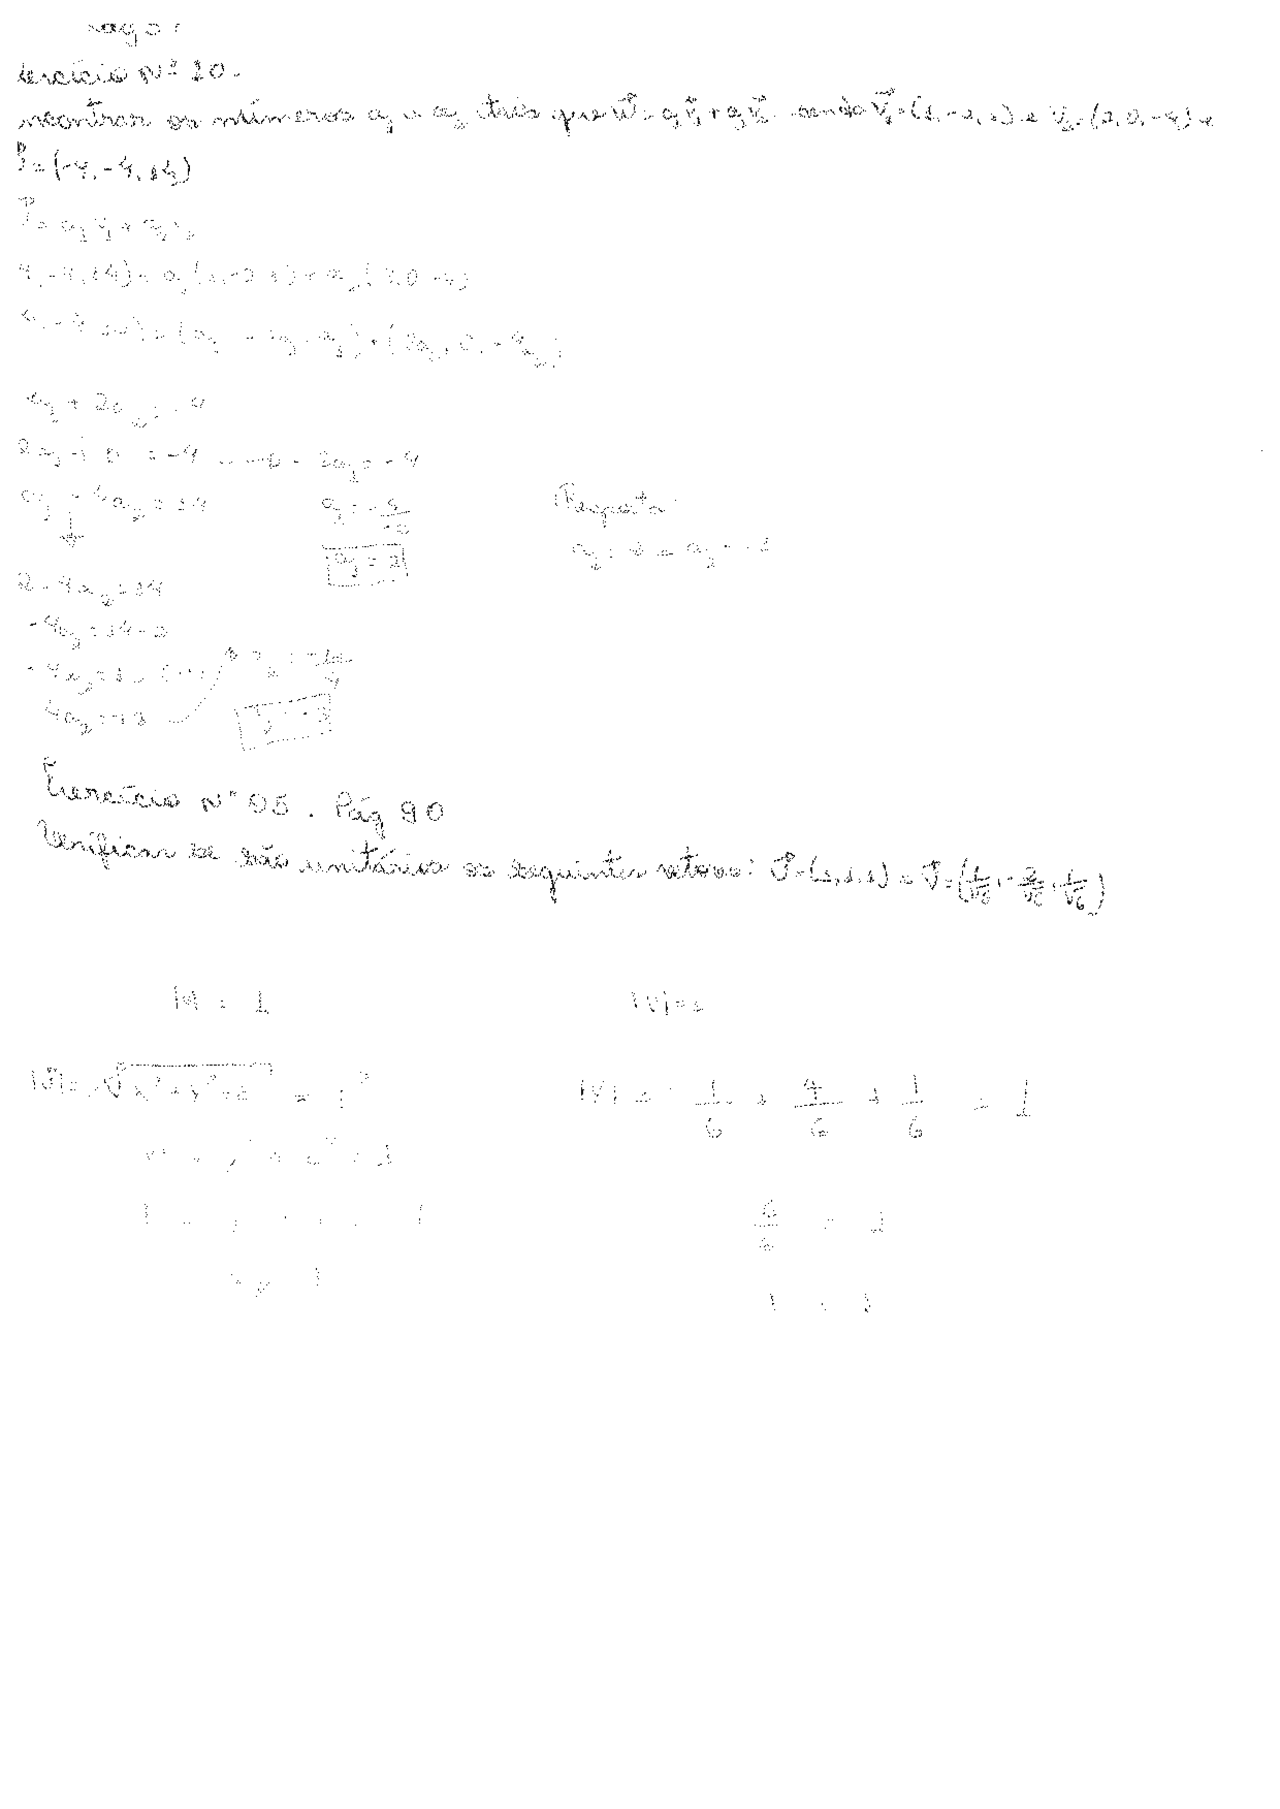 ercício Nº 10.
ncontrar os números a₁ e a₂ tais que w⃗ = a₁v⃗₁ + a₂v⃗₂ sendo v⃗₁ = (1, -2, 1) e v⃗₂ = (2, 0, -4) e
= (-4, -4, 14)
= a₁v₁ + a₂v₂
4, -4, 14) = a₁(1, -2, 1) + a₂(2, 0, -4)
-4, 14) = (a₁, -2a₁, a₁) + (2a₂, 0, -4a₂)
a₁ + 2a₂ = -4
2a₁ + 0 = -4 → -2a₁ = -4
a₁ - 4a₂ = 14
a₁ = -4/-2
a₁ = 2
Resposta:
a₁ = 2 e a₂ = -3
2 - 4a₂ = 14
-4a₂ = 14 - 2
-4a₂ = 12 (-1)
a₂ = -12/4
4a₂ = -12
a₂ = -3
Exercício Nº 05. Pág 90
Verificar se são unitários os seguintes vetores: U⃗ = (1, 1, 1) e V⃗ = (1/√6, -2/√6, 1/√6)
|U| = 1
|V| = 1
|U⃗| = √x² + y² + z² = 1²
|V| = 1/6 + 4/6 + 1/6 = 1
6/6 = 1
1 = 1